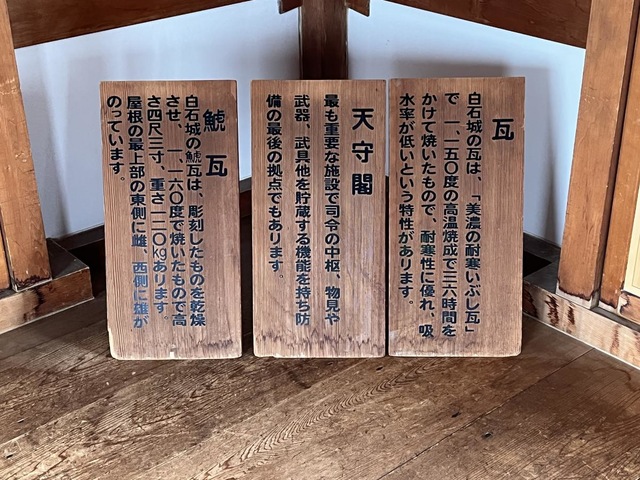 瓦
白石城の瓦は、「美濃の耐寒いぶし瓦」
で一、一五〇度の高温焼成で三六時間を
かけて焼いたもので、耐寒性に優れ、吸
水率が低いという特性があります。
天守閣
最も重要な施設で司令の中枢、物見や
武器、武具他を貯蔵する機能を持ち防
備の最後の拠点でもあります。
鯱瓦
白石城の鯱瓦は、彫刻したものを乾燥
させ、一、一六〇度で焼いたもので高
さ四尺三寸、重さ一二〇kgあります。
屋根の最上部の東側に雌、西側に雄が
のっています。